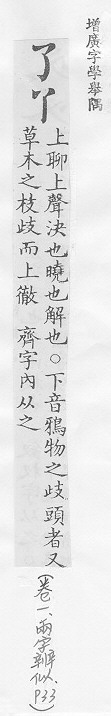 增廣字學舉隅
了丫
上聊上聲決也曉也解也○下音鴉物之歧頭者又
草木之枝歧而上徹 齊字內从之
(卷一、兩字辨似、P33)